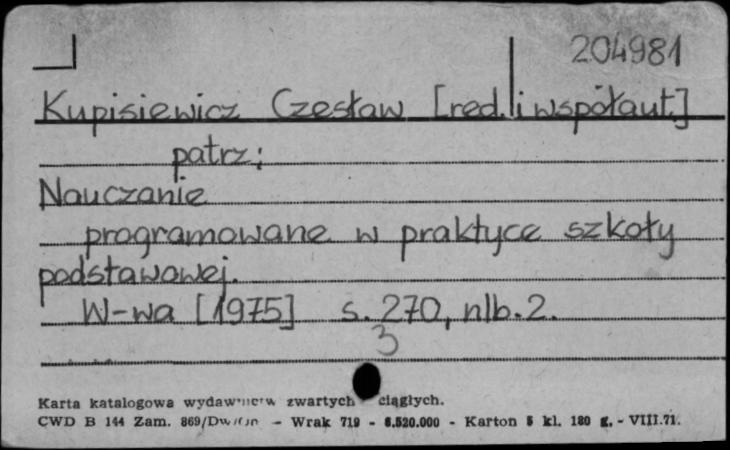 204981
Kupisiewicz Czesław [red. i współaut.]
patrz:
Nauczanie
programowane w praktyce szkoły
podstawowej.
W-wa [1975] s. 270, nlb. 2.
3
Karta katalogowa wydawnictw zwartych ciągłych.
CWD B 144 Zam. 869/ – Wrak 719 - 6.520.000 - Karton 5 kl. 180 g. - VIII.71.